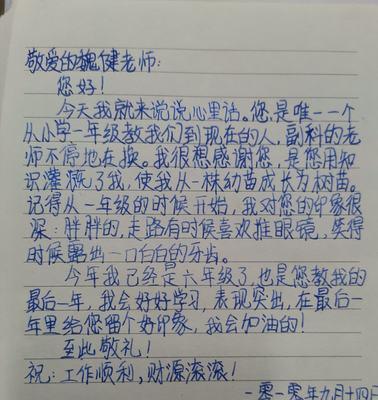 敬爱的魏健老师：
您好！
今天我就来说说心里话。您是唯一一个
从小学一年级教我们到现在的人，副科的老
师不停地在换。我很想感谢您，是您用知
识灌溉了我，使我从一株幼苗成长为树苗。
记得从一年级的时候开始，我对您的印象很
深：胖胖的，走路有时候喜欢推眼镜，笑得
时候露出一口白白的牙齿。
今年我已经是六年级了，也是您教我的
最后一年，我会好好学习，表现突出，在最后一
年里给您留个好印象，我会加油的！
至此敬礼！
祝：工作顺利，财源滚滚！
二零一零年九月十四日